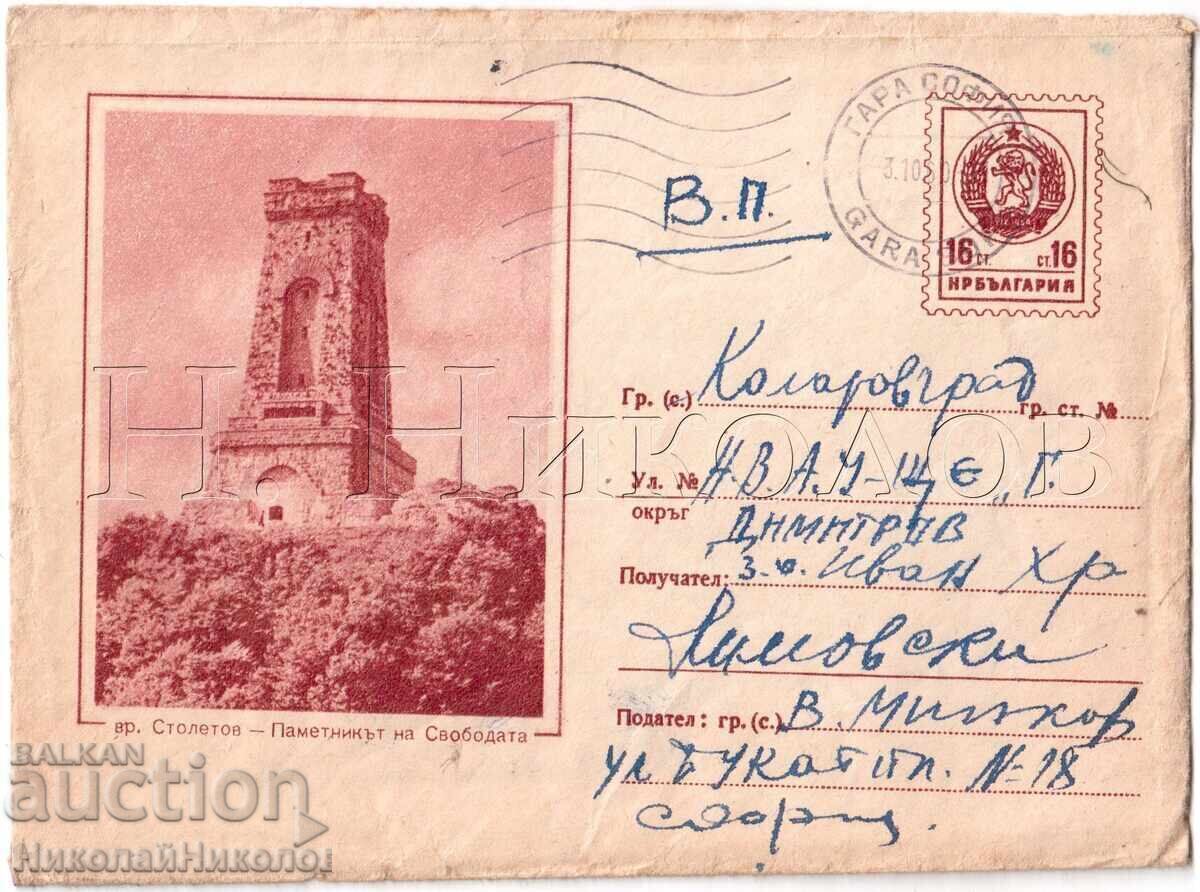 ГАРА СОФИЯ
3.10.60
GARA
В.П.
16 ст. ст. 16
НРБЪЛГАРИЯ
Гр. (с.) Коларовград гр. ст. №
Ул. № НВАУ-ЩЕ „Г.
окръг Димитров
Получател: З-о. Иван Хр
Димовски
Подател: гр. (с.) В.
ул № 18
София.
вр. Столетов — Паметникът на Свободата
Н. Николов
BALKAN
auction
НиколайНиколов